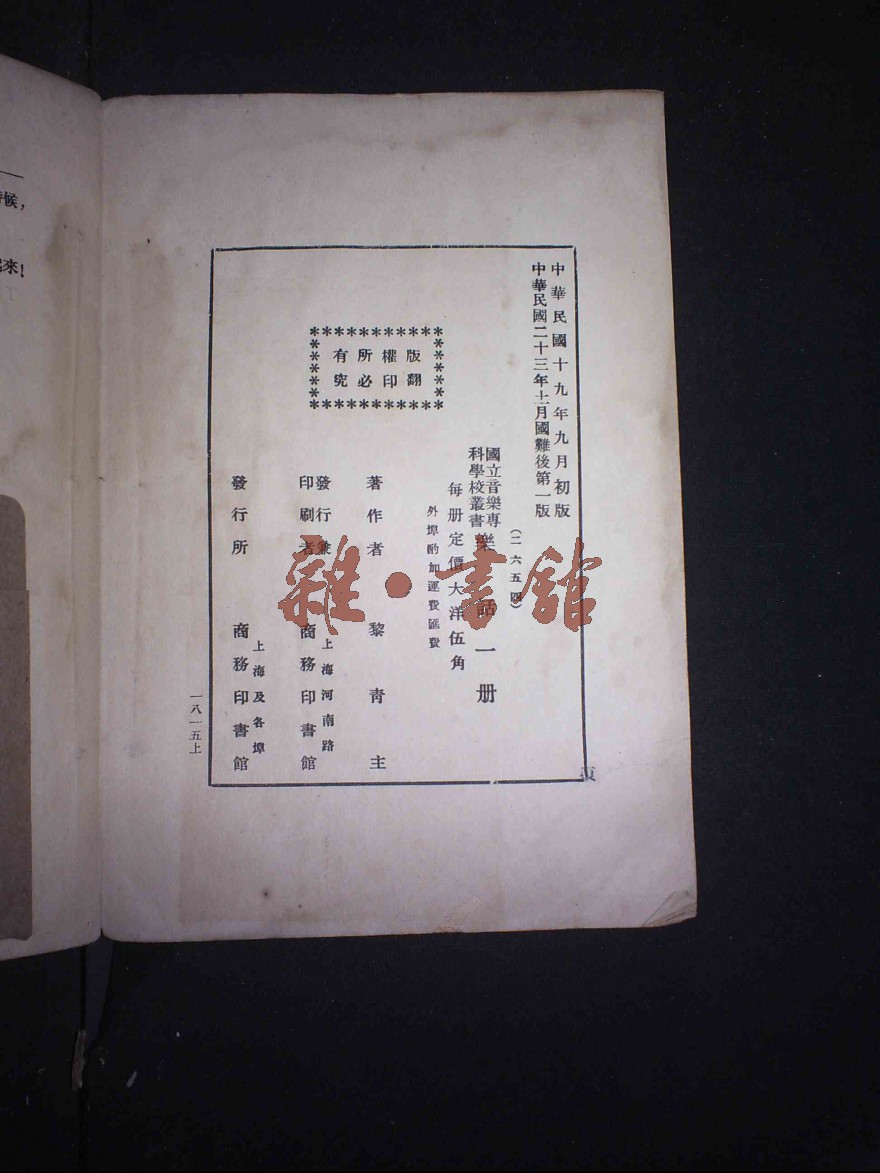 中華民國十九年九月初版
中華民國二十三年十一月國難後第一版
(二六五四)
國立音樂專
科學校叢書
樂話一册
每册定價大洋伍角
外埠酌加運費匯費
版權所有
翻印必究
著作者 黎青主
發行兼
印刷者
上海河南路
商務印書館
發行所
上海及各埠
商務印書館
一八一五上
候,
來!
雜·書館